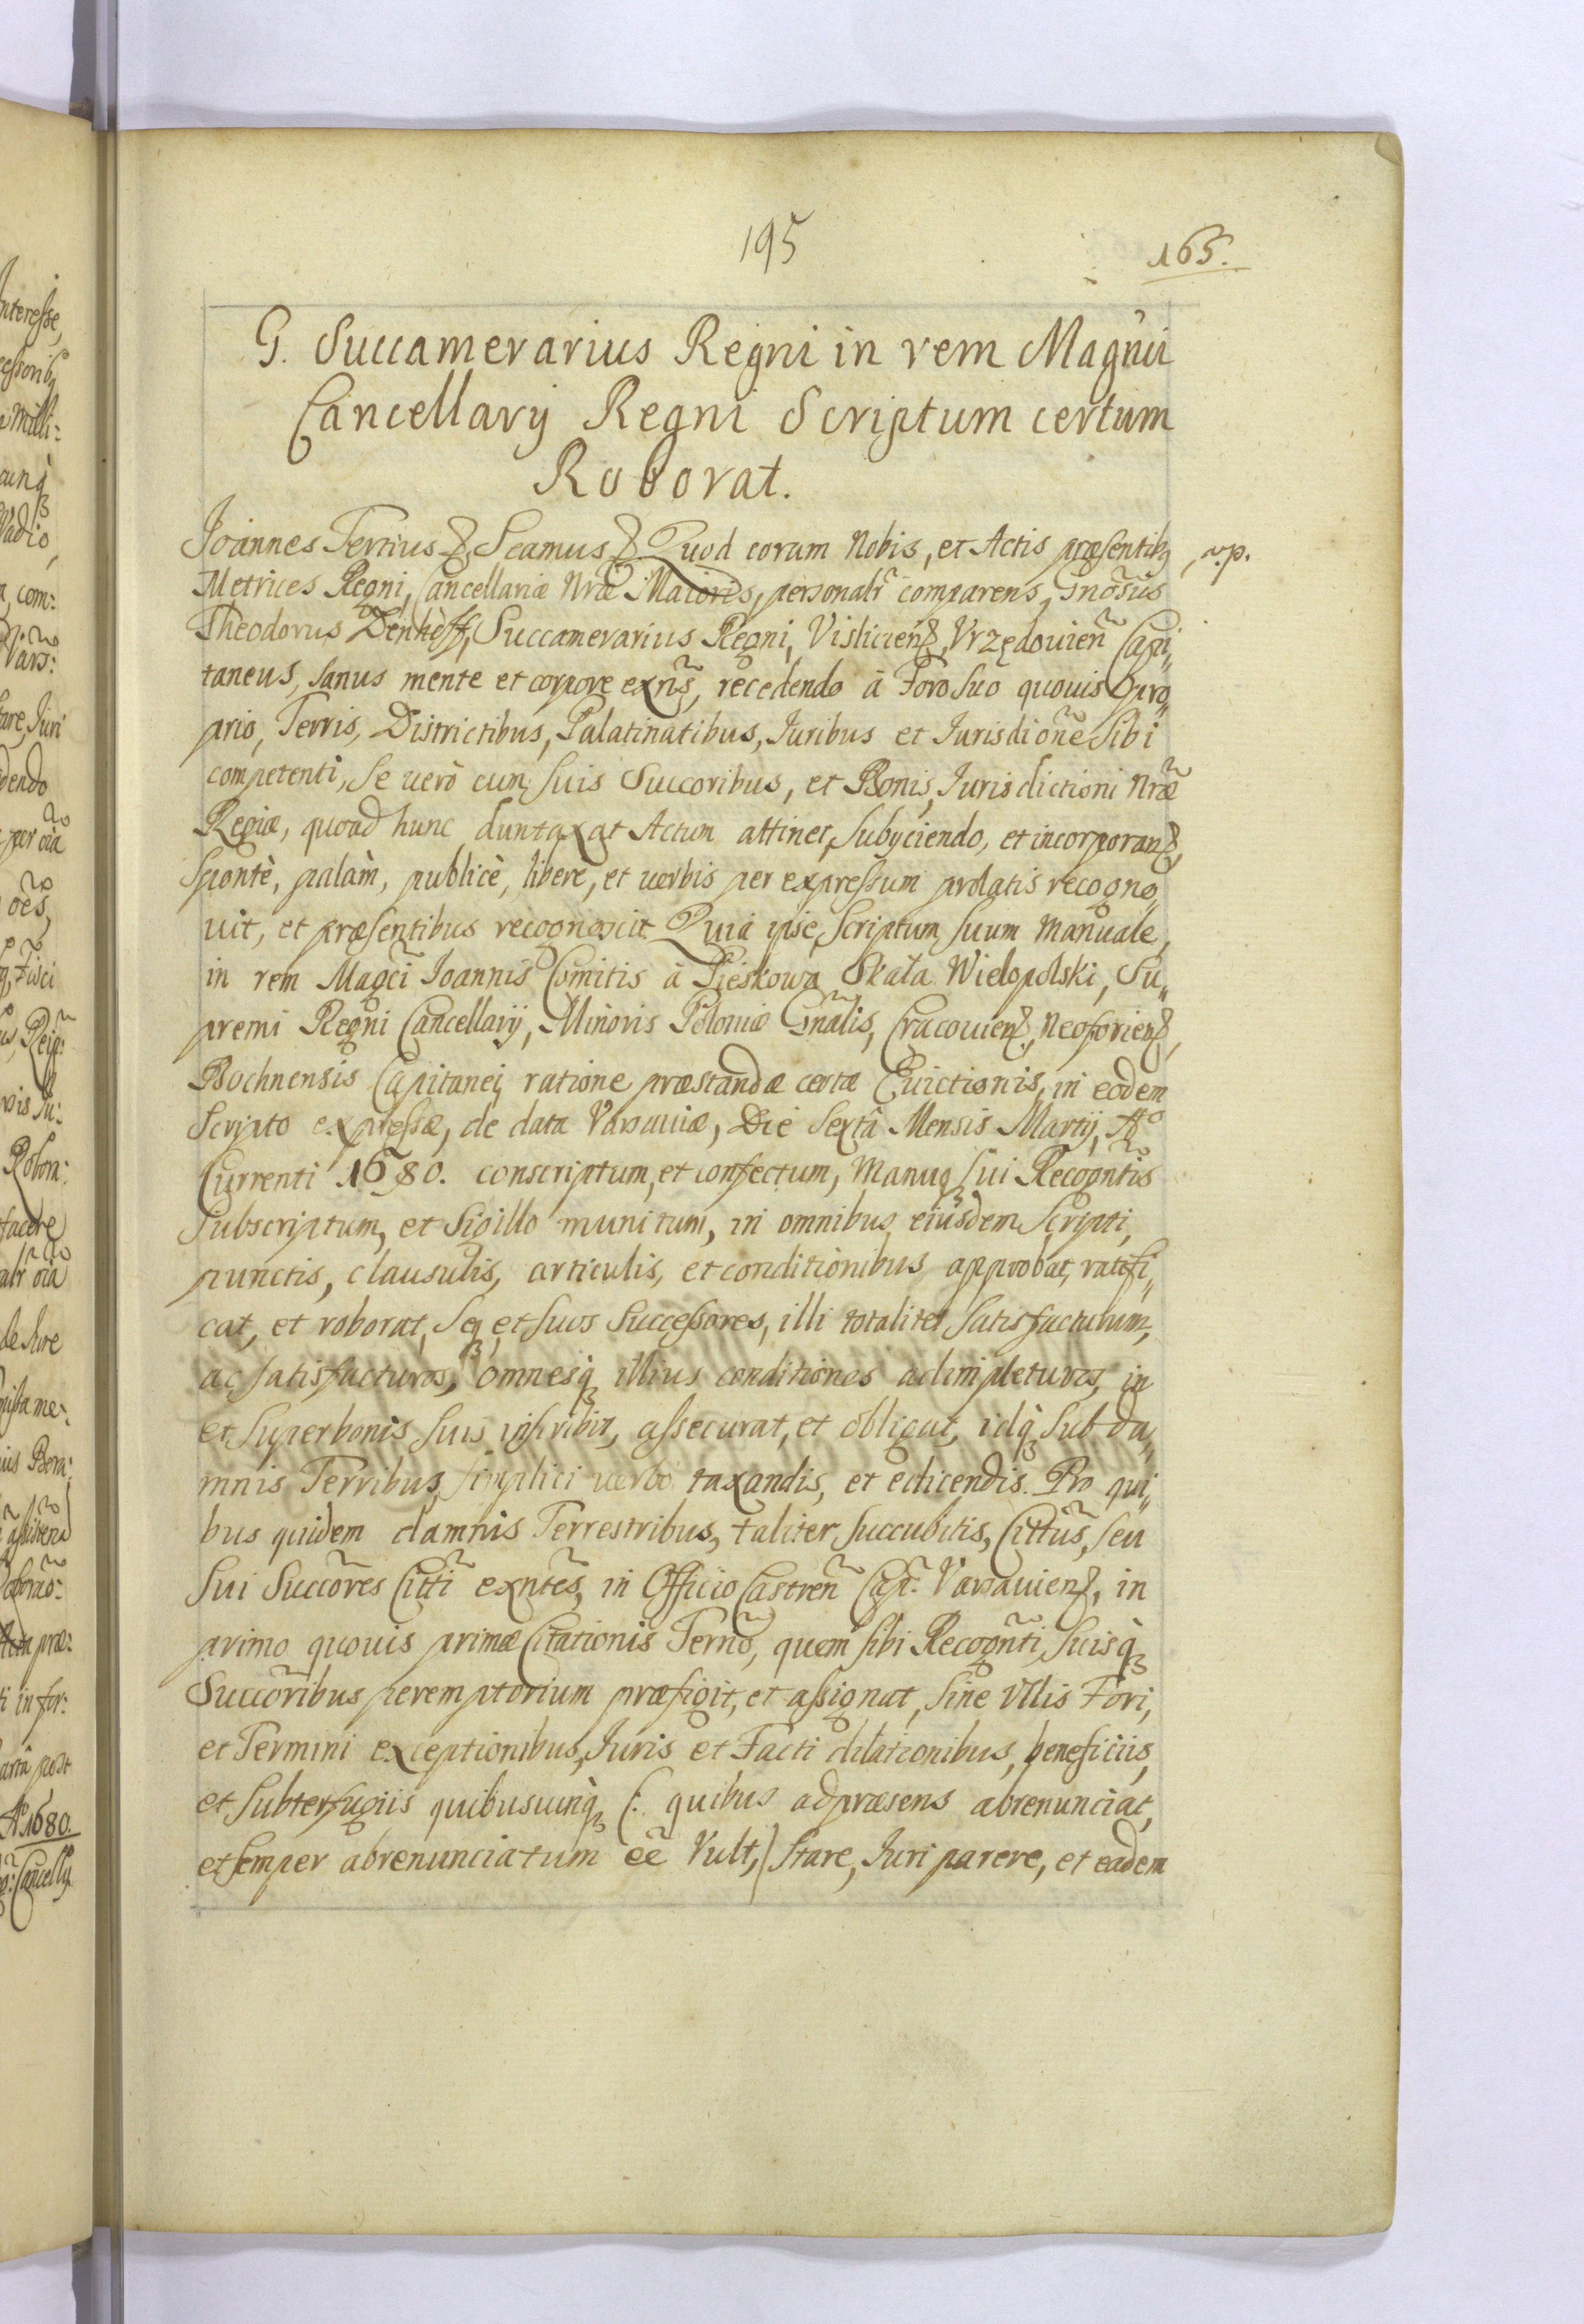 195
165.
G. Succamerarius Regni in rem Magnii
Cancellarij Regni Scriptum certum
Roborat.
Joannes Tertius &, Scamus & Quod coram Nobis, et Actis præsentibq, v.p.
Metrices Regni, Cancellariæ Nræ Maioris, personalr comparens, Gnosus
Theodorus Denhoff, Succamerarius Regni, Vislicien&, Vrzędouien Capi„
taneus, sanus mente et corpore exns, recedendo à Foro suo quouis pro„
prio, Terris, Districtibus, Palatinatibus, Juribus et Jurisdione sibi
competenti, se uerò cum suis Succoribus, et Bonis, Jurisdictioni Nræ
Regiæ, quoad hunc duntaxat Actum attinet, subyciendo, et incorporan&,
Spontè, palàm, publicè, libere, et uerbis per expressum prolatis recogno„
uit, et præsentibus recognoscit. Quia ipse, Scriptum suum Manuale,
in rem Magci Joannis Comitis à Pieskowa Skała Wielopolski, Su„
premi Regni Cancellarij, Minoris Poloniæ Gnalis, Cracouien&, Neoforien&,
Bochnensis Capitanei, ratione præstandæ certæ Euictionis, in eodem
Scripto expressæ, de data Varsauiæ, Die Sextâ Mensis Martij, Ao
Currenti 1680. conscriptum, et confectum, Manuq sui Recogntis
subscriptum, et Sigillo munitum, in omnibus eiusdem Scripti,
punctis, clausulis, articulis, et conditionibus approbat, ratifi„
cat, et roborat, Seq, et suos Successores, illi totaliter satisfacturum,
ac satisfacturos, omnesq illius conditiones adimpleturos, in
et super bonis suis inscribit, assecurat, et obligat, idq sub da„
mnis Terribus, simplici uerbo taxandis, et edicendis. Pro qui„
bus quidem damnis Terrestribus, taliter succubitis, Cittus, seu
sui Succores Citti exntes, in Officio Castren Cap. Varsauien&, in
primo quouis primæ Citationis Terno, quem sibi Recognti, suisq
Succoribus peremptorium præfigit, et assignat, sine Vllis Fori,
et Termini exceptionibus, Juris et Facti dilationibus, beneficiis,
et subterfugiis quibusuinq (: quibus ad præsens abrenunciat,
et semper abrenunciatum ee Vult,) stare, Juri parere, et eadem